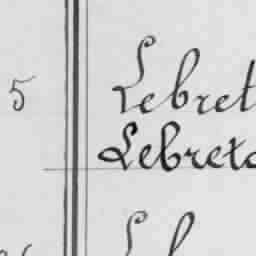 5 Lebret
Lebreto